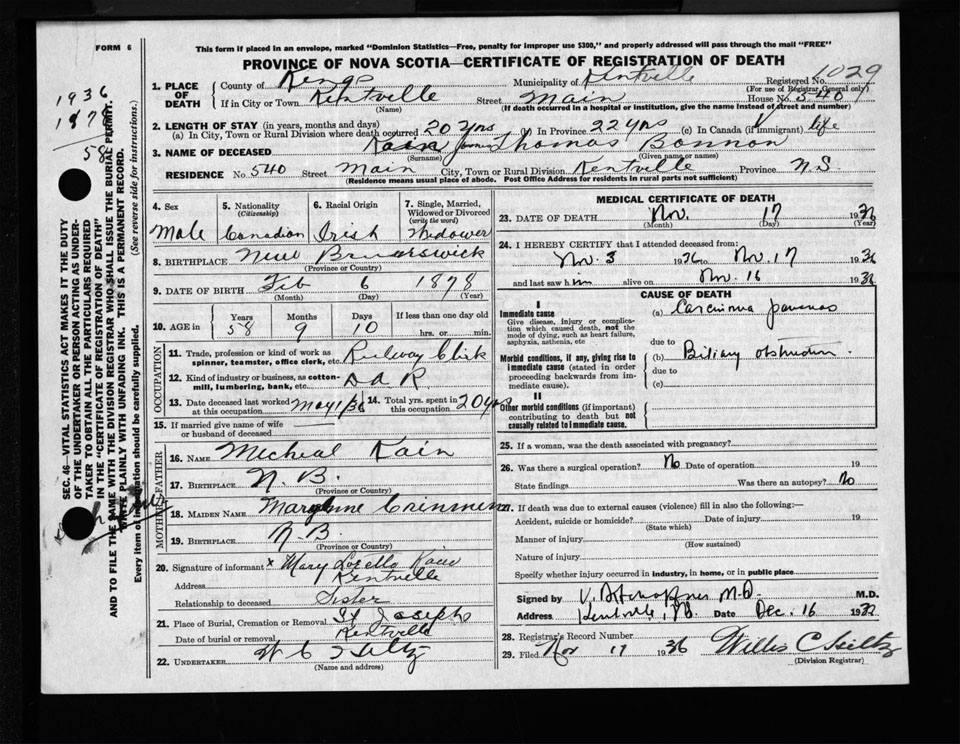 FORM 6
This form if placed in an envelope, marked "Dominion Statistics—Free, penalty for improper use $300," and properly addressed will pass through the mail "FREE"
PROVINCE OF NOVA SCOTIA—CERTIFICATE OF REGISTRATION OF DEATH
1936
1878
58
SEC. 46—VITAL STATISTICS ACT MAKES IT THE DUTY
OF THE UNDERTAKER OR PERSON ACTING AS UNDER-
TAKER TO OBTAIN ALL THE PARTICULARS REQUIRED
IN THE "CERTIFICATE OF REGISTRATION OF DEATH"
AND TO FILE THE SAME WITH THE DIVISION REGISTRAR WHO SHALL ISSUE THE BURIAL PERMIT.
WRITE PLAINLY WITH UNFADING INK. THIS IS A PERMANENT RECORD.
Every item of information should be carefully supplied. (See reverse side for instructions.)
1. PLACE OF DEATH County of Kings Municipality of Kentville Registered No. 1029
(For use of Registrar General only)
If in City or Town Kentville Street Main House No. 540
(Name) (If death occurred in a hospital or institution, give the name instead of street and number)
2. LENGTH OF STAY (in years, months and days)
(a) In City, Town or Rural Division where death occurred 20 yrs (b) In Province 22 yrs (c) In Canada (if immigrant) life
3. NAME OF DECEASED Kain James Thomas Bonnon
(Surname) (Given name or names)
RESIDENCE No. 540 Street Main City, Town or Rural Division Kentville Province N.S
(Residence means usual place of abode. Post Office Address for residents in rural parts not sufficient)
4. Sex 5. Nationality (Citizenship) 6. Racial Origin 7. Single, Married, Widowed or Divorced (write the word)
Male Canadian Irish Widower
8. BIRTHPLACE New Brunswick
(Province or Country)
9. DATE OF BIRTH Feb 6 1878
(Month) (Day) (Year)
10. AGE in Years Months Days If less than one day old
58 9 10 hrs. or min.
OCCUPATION
11. Trade, profession or kind of work as spinner, teamster, office clerk, etc. Railway Clerk
12. Kind of industry or business, as cotton-mill, lumbering, bank, etc. D A R.
13. Date deceased last worked at this occupation May 1/36 14. Total yrs. spent in this occupation 20 yrs
15. If married give name of wife or husband of deceased
FATHER
16. NAME Micheal Kain
17. BIRTHPLACE N. B.
(Province or Country)
MOTHER
18. MAIDEN NAME Maryanne Crinmen
19. BIRTHPLACE N. B.
(Province or Country)
20. Signature of informant x Mary Loretto Kain
Address Kentville
Relationship to deceased Sister
21. Place of Burial, Cremation or Removal St Josephs
Date of burial or removal Kentville
22. UNDERTAKER W C Hiltz
MEDICAL CERTIFICATE OF DEATH
23. DATE OF DEATH Nov. 17 1936
(Month) (Day) (Year)
24. I HEREBY CERTIFY that I attended deceased from:
Nov. 3 1936 to Nov. 17 1936
and last saw him alive on Nov. 16 1936
CAUSE OF DEATH
I
Immediate cause (a) Carcinoma pancreas
Give disease, injury or complication which caused death, not the mode of dying, such as heart failure, asphyxia, asthenia, etc
due to
Morbid conditions, if any, giving rise to immediate cause (stated in order proceeding backwards from immediate cause). (b) Biliary obstruction.
due to
(c)
II
Other morbid conditions (if important) contributing to death but not causally related to immediate cause.
25. If a woman, was the death associated with pregnancy?
26. Was there a surgical operation? No Date of operation 19
State findings Was there an autopsy? No
27. If death was due to external causes (violence) fill in also the following:—
Accident, suicide or homicide? Date of injury 19
(State which)
Manner of injury
(How sustained)
Nature of injury
Specify whether injury occurred in industry, in home, or in public place
Signed by M.D. M.D.
Address Kentville, N.S. Date Dec. 16 19
28. Registrar's Record Number
29. Filed Nov 17 1936 Willis C Hiltz
(Division Registrar)